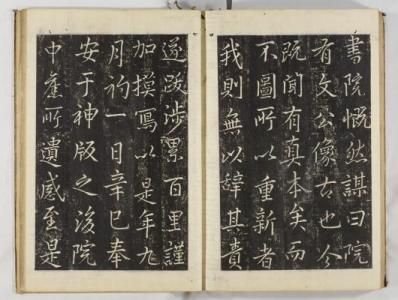 書院慨然謀曰院
有文公像古也今
既聞有真本矣而
不圖所以重新者
我則無以辞其責
遂跋渉累百里謹
加摸寫以是年九
月初一日辛巳奉
安于神版之後院
中舊所遺感至是